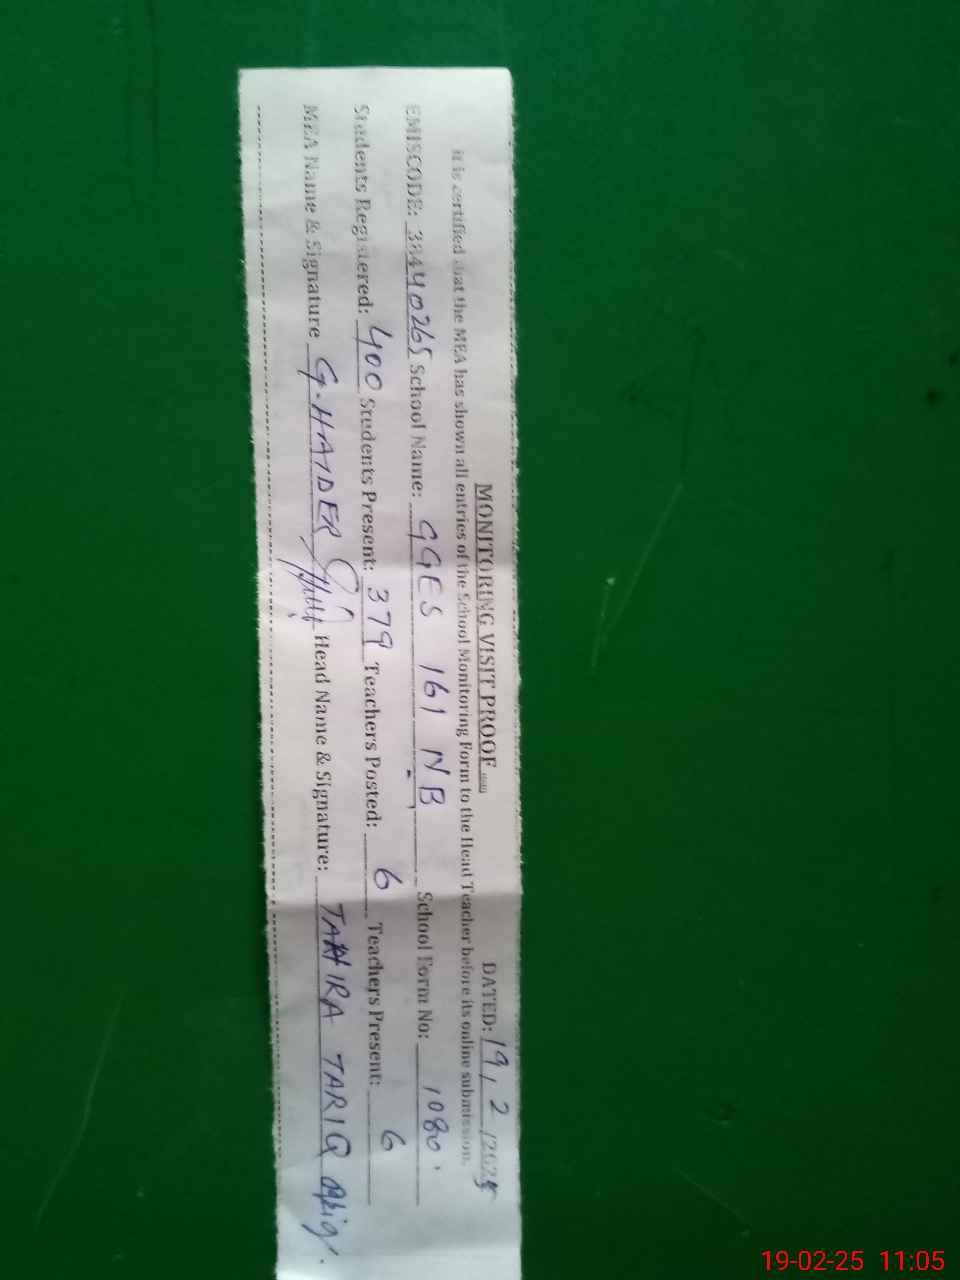 MONITORING VISIT PROOF DATED: 19/2/2025
it is certified that the MEA has shown all entries of the School Monitoring Form to the Head Teacher before its online submission.
EMISCODE: 38440265 School Name: GGES 161 NB School Form No: 1080
Students Registered: 400 Students Present: 379 Teachers Posted: 6 Teachers Present: 6
MEA Name & Signature G.HAIDER Head Name & Signature: TAHIRA TARIQ
19-02-25 11:05